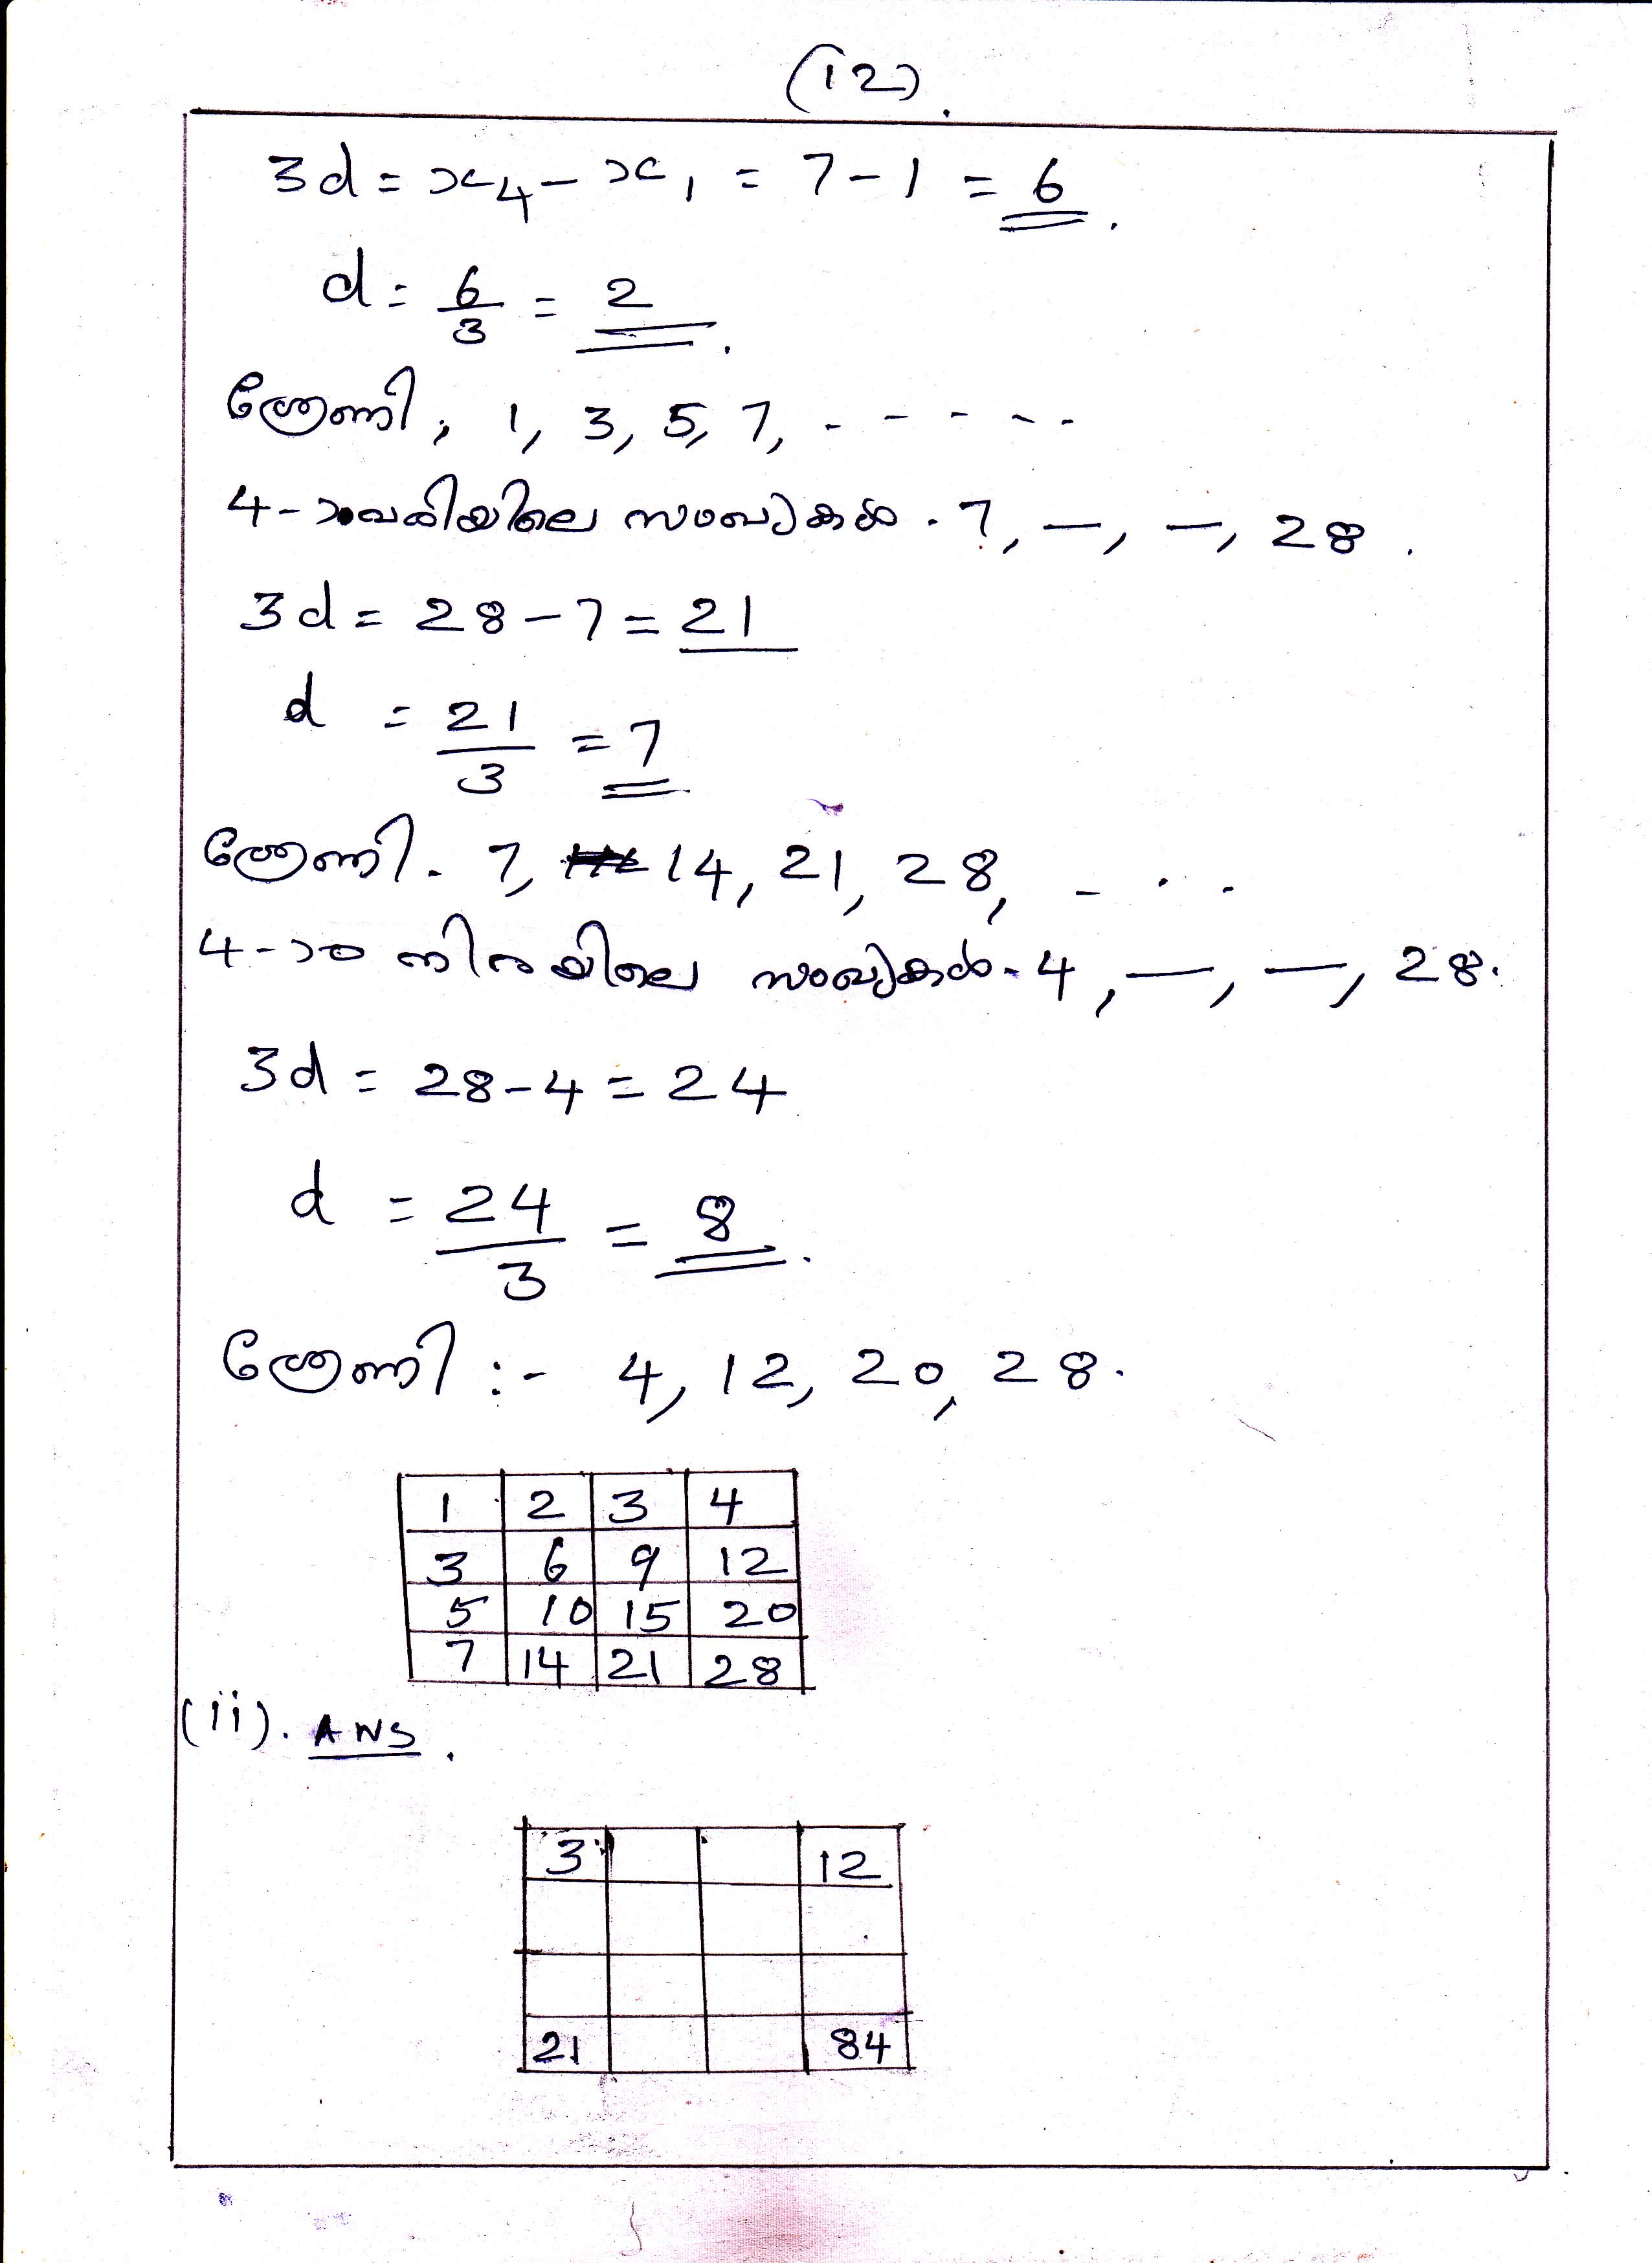 (12).
3d = x₄ - x₁ = 7 - 1 = 6.
d = 6/3 = 2.
ശ്രേണി, 1, 3, 5, 7, - - - - -
4-ാംവരിയിലെ സംഖ്യകൾ. 7, —, —, 28.
3d = 28 - 7 = 21
d = 21/3 = 7
ശ്രേണി. 7, 14, 21, 28, - . .
4-ാം നിരയിലെ സംഖ്യകൾ- 4, —, —, 28.
3d = 28 - 4 = 24
d = 24/3 = 8.
ശ്രേണി :- 4, 12, 20, 28.
1 2 3 4
3 6 9 12
5 10 15 20
7 14 21 28
(ii). ANS.
3 12
21 84